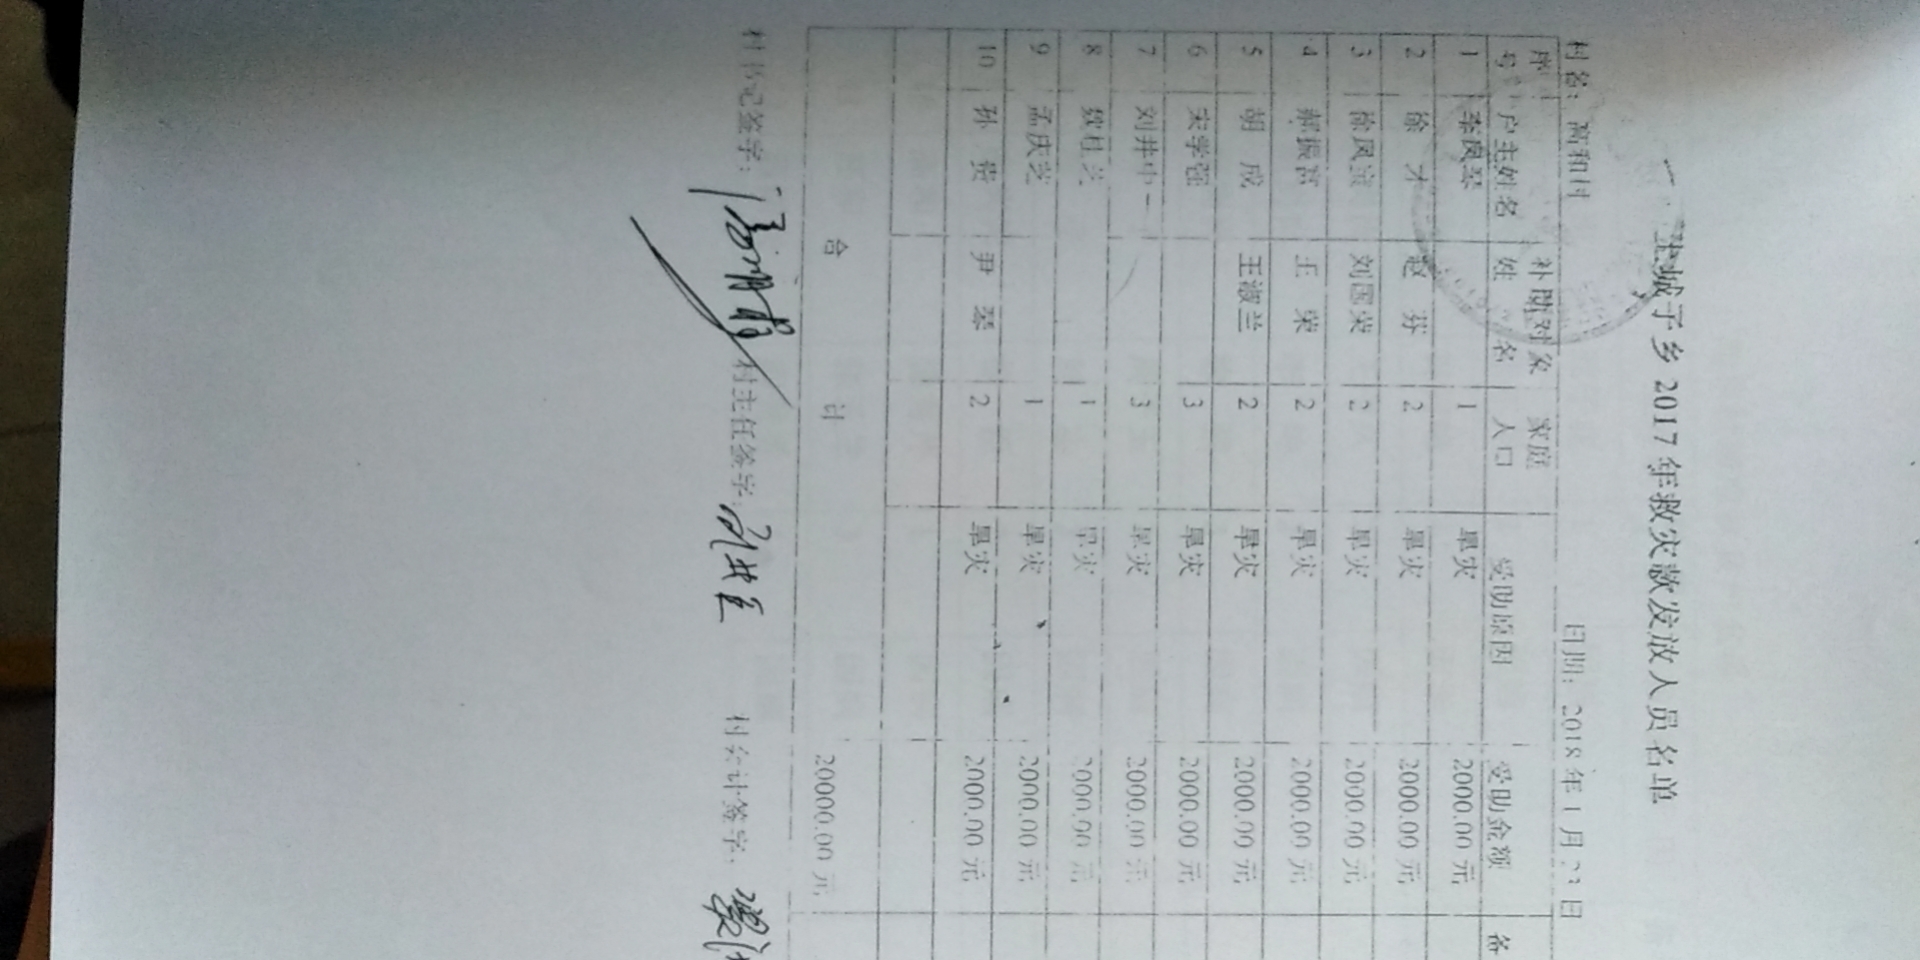 城子乡 2017 年救灾款发放人员名单
村名: 高和村 日期: 2018 年 1 月 23 日
序号 户主姓名 补助对象姓名 家庭人口 受助原因 受助金额 备
1 李凤琴 1 旱灾 2000.00 元
2 徐才 赵芬 2 旱灾 2000.00 元
3 徐凤宝 刘国荣 2 旱灾 2000.00 元
4 郝振富 王荣 2 旱灾 2000.00 元
5 胡成 王淑兰 2 旱灾 2000.00 元
6 宋学强 3 旱灾 2000.00 元
7 刘井中 3 旱灾 2000.00 元
8 魏桂兰 1 旱灾 2000.00 元
9 孟庆芝 1 旱灾 2000.00 元
10 孙贵 尹琴 2 旱灾 2000.00 元
合计 20000.00 元
村书记签字: 村主任签字: 村会计签字: